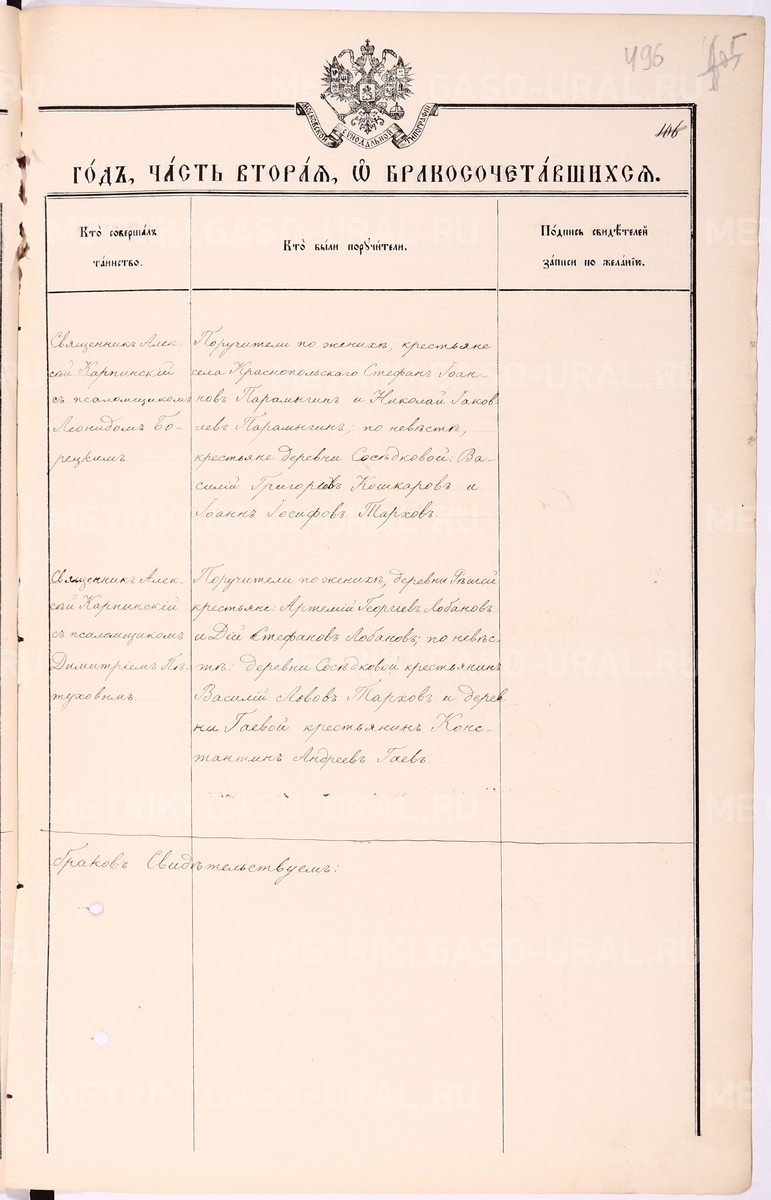 496
106
МОСКОВСКОЙ СѴНОДАЛЬНОЙ ТИПОГРАФІИ
ГО́ДЪ, ЧА́СТЬ ВТОРА́Я, Ѡ҆ БРАКОСОЧЕТА́ВШИХСЯ.
Кто̀ совершалъ
та́инство.
Кто̀ бы́ли порꙋчи́тели.
По́дпись свидѣ́телей
за́писи по жела́нїю.
Священникъ Алек-
сѣй Карпинскій
съ псаломщикомъ
Леонидомъ Бо-
рецкимъ.
Поручители по женихѣ, крестьяне
села Краснопольскаго Стефанъ Іоан-
новъ Парамыгинъ и Николай Іаков
левъ Парамыгинъ; по невѣстѣ,
крестьяне деревни Сосѣдковой: Ва-
силій Григорьевъ Кошкаровъ и
Іоаннъ Іосифовъ Тарховъ.
Священникъ Алек-
сѣй Карпинскій
съ псаломщикомъ
Димитріемъ Пѣ-
туховымъ.
Поручители по женихѣ, деревни Рѣшей
крестьяне: Артемій Георгіевъ Лобановъ
и Дій Стефановъ Лобановъ; по невѣс-
тѣ: деревни Сосѣдковой крестьянинъ
Василій Львовъ Тарховъ и дерев
ни Гаевой крестьянинъ Конс-
тантинъ Андреевъ Гаевъ.
браковъ. Свидѣтельствуемъ:
METRIKI.GASO-URAL.RU